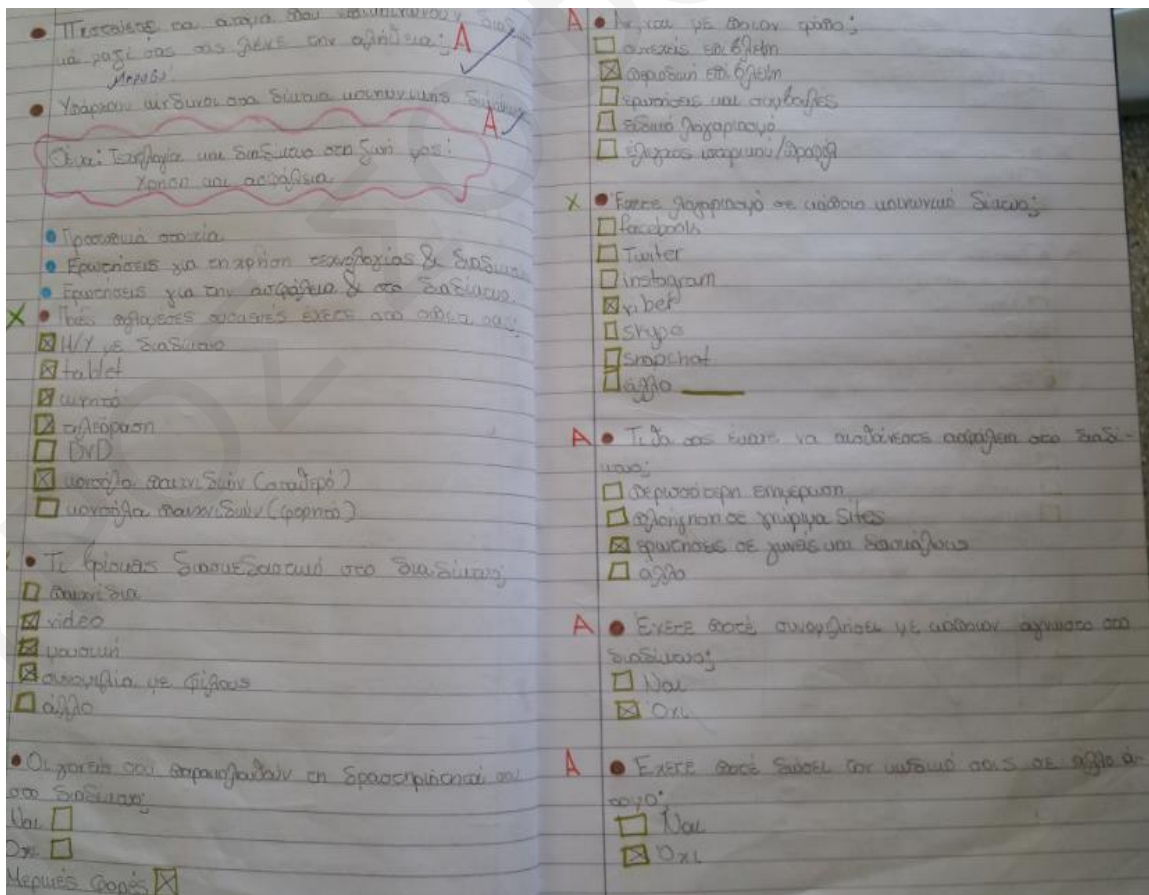 ● Πιστεύετε τα άτομα που επικοινωνούν διαδι
κά μαζί σας σας λένε την αλήθεια; Α
Μπορεί.
● Υπάρχουν κίνδυνοι στα δίκτυα κοινωνικής δικτύωσης Α
Θέμα: Τεχνολογία και διαδίκτυο στη ζωή μας:
Χρήση και ασφάλεια.
● Προσωπικά στοιχεία
● Ερωτήσεις για τη χρήση τεχνολογίας & διαδικτύου
● Ερωτήσεις για την ασφάλεια & στο διαδίκτυο.
Χ ● Ποιές συσκευές έχετε στο σπίτι σας;
Η/Υ με διαδίκτυο
tablet
κινητό
τηλεόραση
DVD
κονσόλα παιχνιδιών (σταθερό)
κονσόλα παιχνιδιών (φορητό)
● Τι βρίσκεις διασκεδαστικό στο διαδίκτυο;
παιχνίδια
video
μουσική
συνομιλία με φίλους
άλλο
● Οι γονείς σου παρακολουθούν τη δραστηριότητά σου
στο διαδίκτυο;
Ναι
Όχι
Μερικές φορές
Α ● Αν ναι με ποιον τρόπο;
συνεχής επίβλεψη
περιοδική επίβλεψη
ερωτήσεις και συμβουλές
ειδικό λογαριασμό
έλεγχος ιστορικού/
Χ ● Έχετε λογαριασμό σε κάποιο κοινωνικό δίκτυο;
facebook
Twiter
instagram
viber
skype
snapchat
άλλο
Α ● Τι θα σας έκανε να αισθάνεστε ασφάλεια στο διαδί-
κτυο;
περισσότερη ενημέρωση
πλοήγηση σε γνώριμα sites
ερωτήσεις σε γονείς και δασκάλους
άλλο
Α ● Έχετε ποτέ συνομιλήσει με κάποιον άγνωστο στο
διαδίκτυο;
Ναι
Όχι
Α ● Έχετε ποτέ δώσει τον κωδικό σας σε άλλο ά-
τομο;
Ναι
Όχι